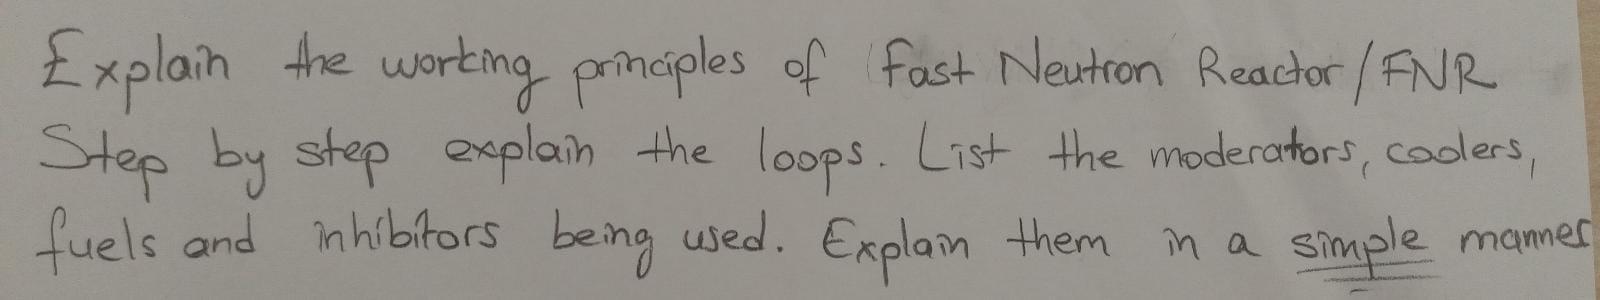 Explain the working principles of Fast Neutron Reactor/FNR
Step by step explain the loops. List the moderators, coolers,
fuels and inhibitors being used. Explain them in a simple manner